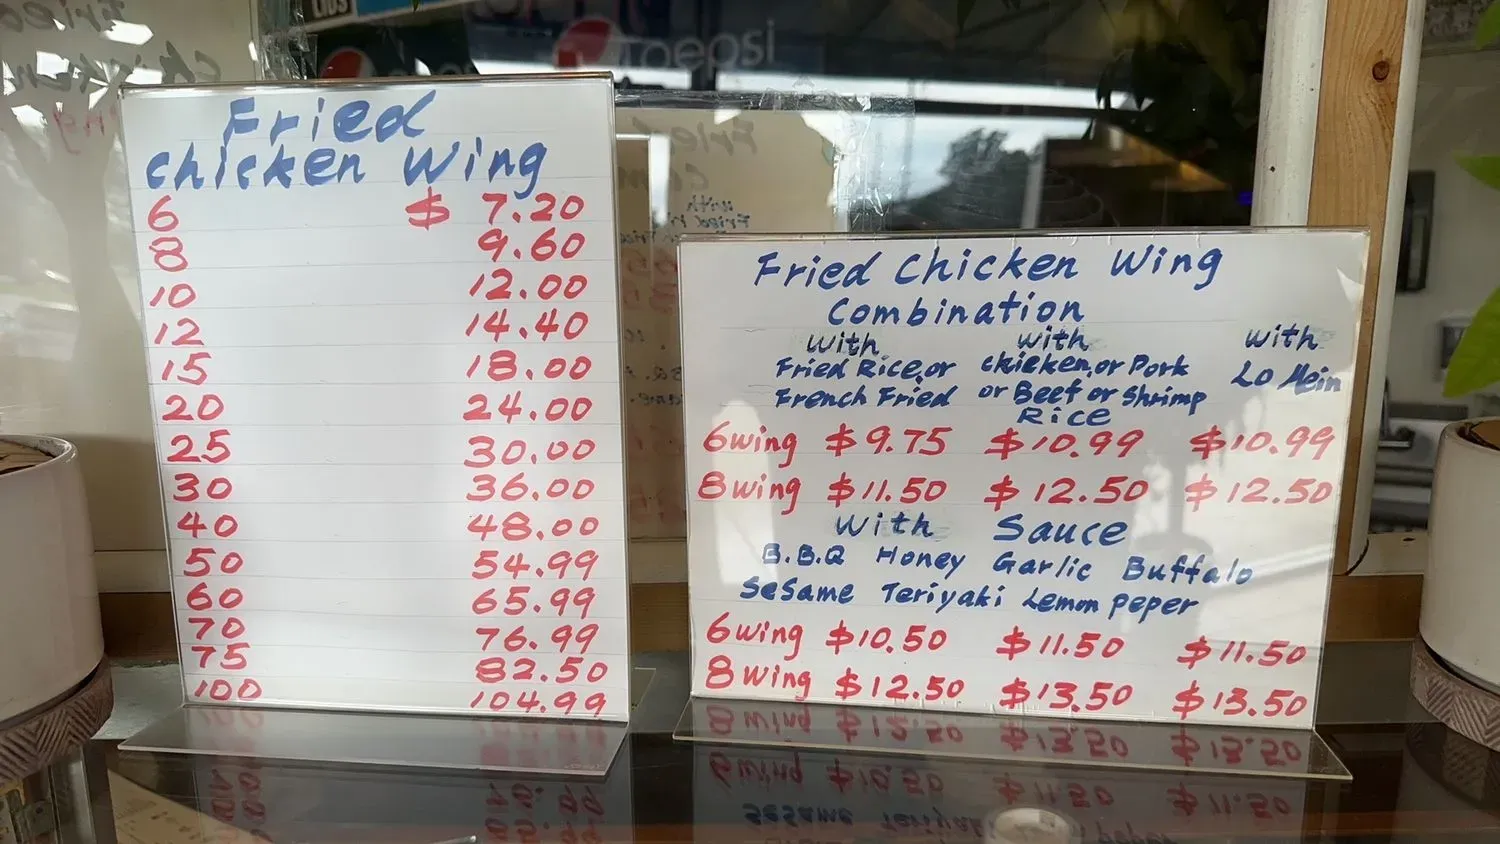 LIDS
pepsi
Fried
chicken Wing
6 $ 7.20
8 9.60
10 12.00
12 14.40
15 18.00
20 24.00
25 30.00
30 36.00
40 48.00
50 54.99
60 65.99
70 76.99
75 82.50
100 104.99
Fried Chicken Wing
Combination
with with with
Fried Rice,or chicken,or Pork Lo Mein
French Fried or Beef or Shrimp
Rice
6wing $9.75 $10.99 $10.99
8wing $11.50 $12.50 $12.50
With Sauce
B.B.Q Honey Garlic Buffalo
SeSame Teriyaki Lemon PePer
6wing $10.50 $11.50 $11.50
8wing $12.50 $13.50 $13.50